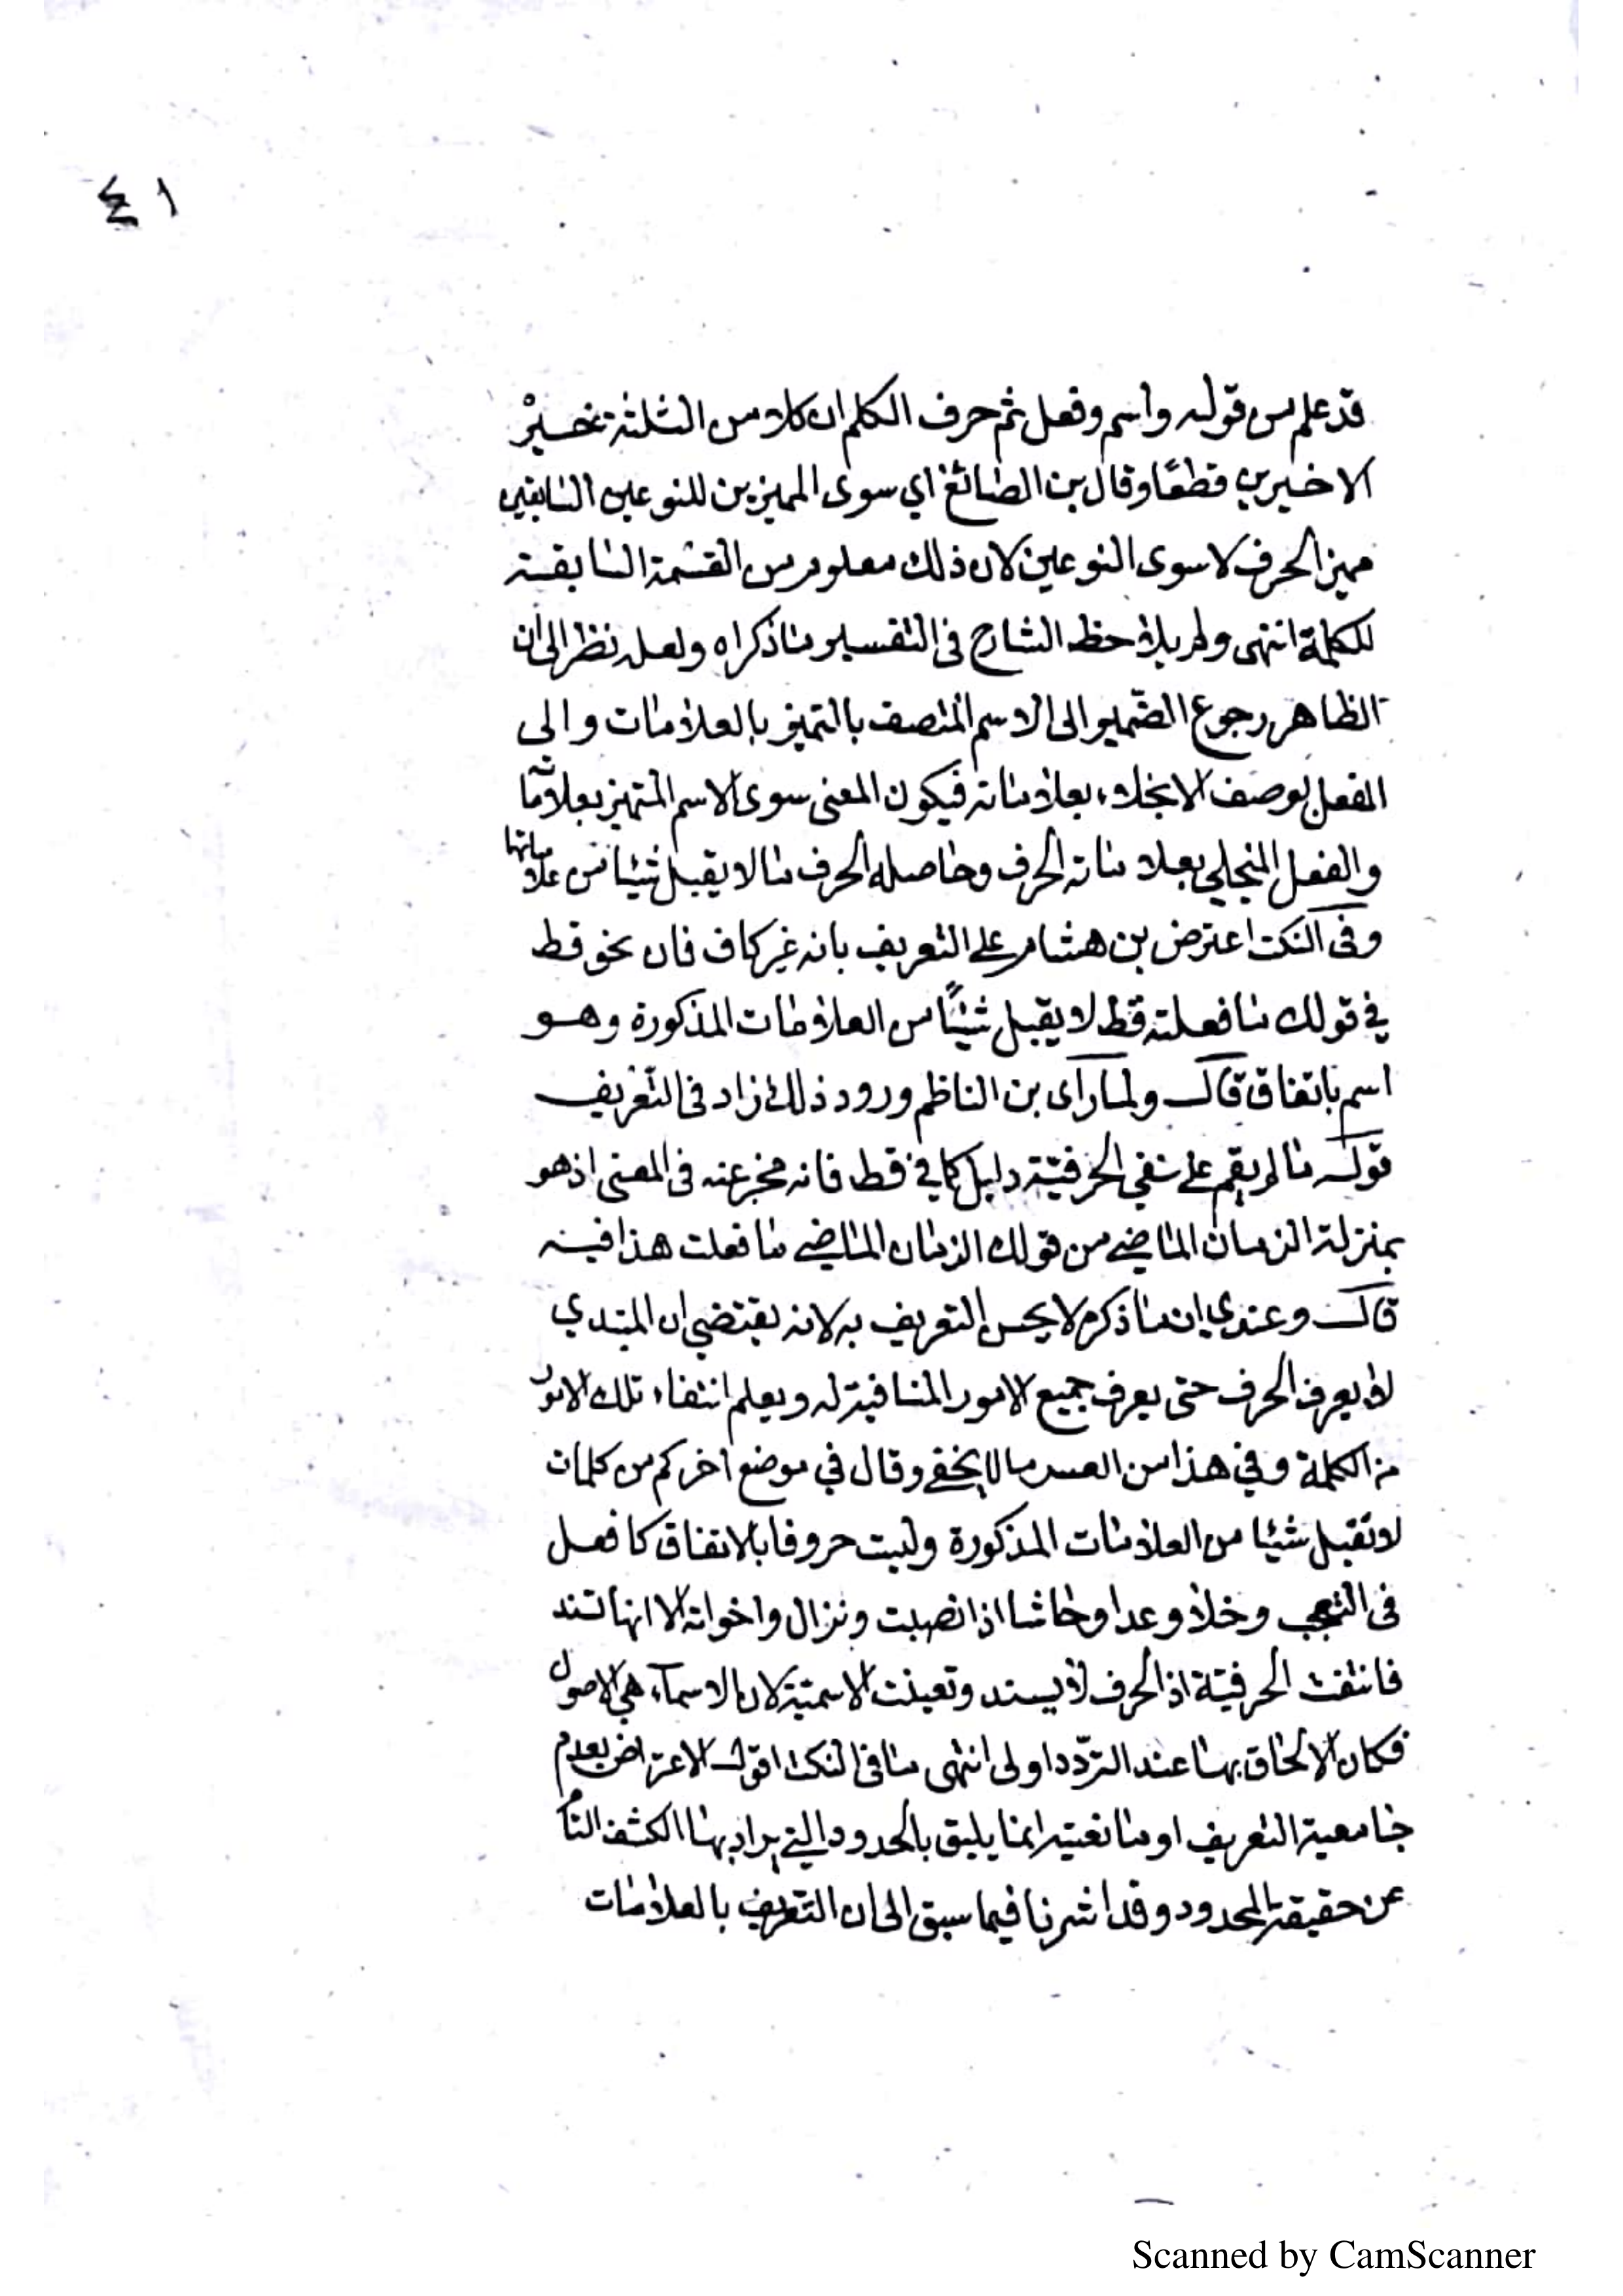 ٤١
قد علم من قوله واسم وفعل ثم حرف الكلم ان كلا من الثلثة غير
الاخيرين قطعًا وقال بن الصائغ اي سوى المميزين للنوعين السابقين
مميز الحرف لا سوى النوعين لان ذلك معلوم من القسمة السابقة
للكلمة انتهى ولم يلاحظ الشارح فى التفسير ما ذكراه ولعله نظر الى ان
الظاهر رجوع الضمير الى الاسم المتصف بالتميز بالعلامات والى
الفعل بوصف الانجلاء بعلاماته فيكون المعنى سوى الاسم المتميز بعلاماته
والفعل المنجلي بعلاماته الحرف وحاصله الحرف ما لا يقبل شيئا من علاماتها
وفى النكت اعترض بن هشام على التعريف بانه غير كاف فان نحو قط
في قولك ما فعلته قط لا يقبل شيئًا من العلامات المذكورة وهو
اسم باتفاق قال ولما رأى بن الناظم ورود ذلك زاد فى التعريف
قوله ما لم يقم على نفي الحرفيّة دليل كما في قط فانه مخبر عنه فى المعنى اذ هو
بمنزلة الزمان الماضي من قولك الزمان الماضي ما فعلت هذا فيه
قال وعندي ان ما ذكره لا يحسن التعريف به لانه يقتضي ان المبتدي
لا يعرف الحرف حتى يعرف جميع الامور المنافية له ويعلم انتفاء تلك الامور
من الكلمة وفي هذا من العسر ما لا يخفى وقال في موضع اخر كم من كلمات
لا تقبل شيئا من العلامات المذكورة وليست حروفا بالاتفاق كافعل
فى التعجب وخلا وعدا وحاشا اذا نصبت ونزال واخواته الا انها تسند
فانتفت الحرفيّة اذ الحرف لا يسند وتعينت الاسميّة لان الاسمآء هي الاصول
فكان الالحاق بها عند التردّد اولى انتهى ما فى النكت اقول الاعتراض بعدم
جامعية التعريف او مانعيته انما يليق بالحدود التي يراد بها الكشف التام
عن حقيقة المحدود وقد اشرنا فيما سبق الى ان التعريف بالعلامات
Scanned by CamScanner